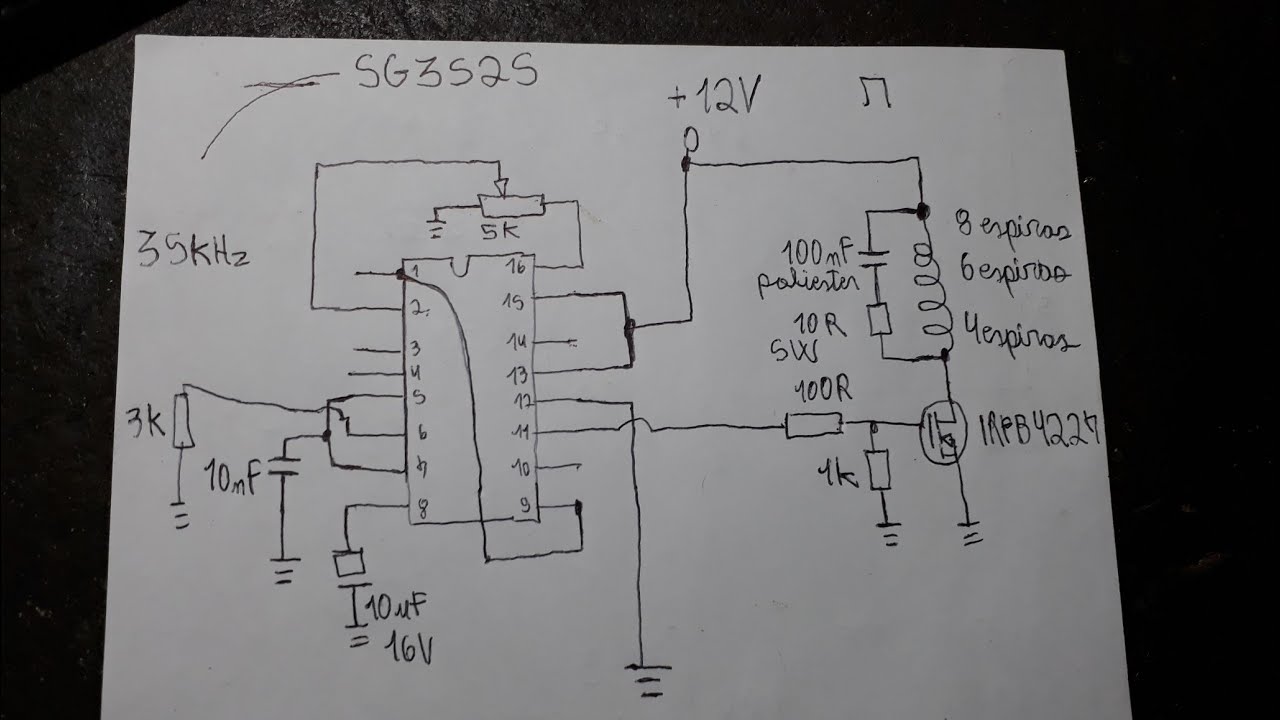 SG3525
+12V
35kHz
5K
1
2
3
4
5
6
7
8
16
15
14
13
12
11
10
9
3K
10nF
10uF
16V
100nF
poliester
10R
5W
8 espiras
6 espiras
4 espiras
100R
1k
IRFB4227